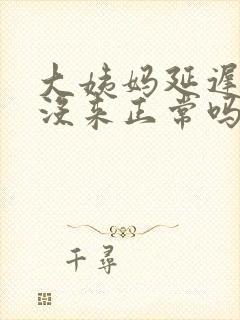 大姨妈延迟
没来正常吗
千寻